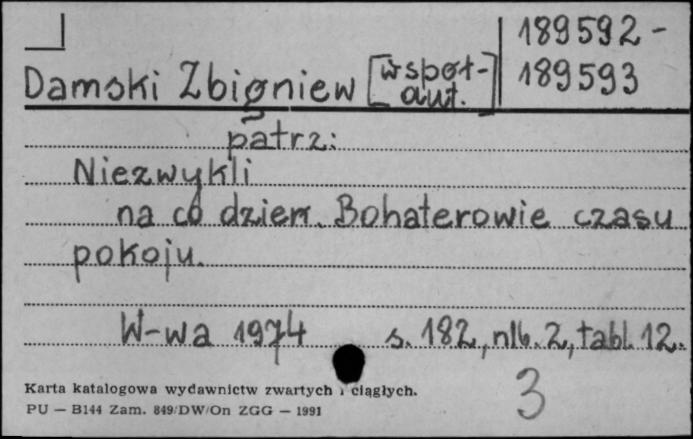 189592 -
189593
Damski Zbigniew [współ-
aut.]
patrz:
Niezwykli
na co dzień. Bohaterowie czasu
pokoju.
W-wa 1974 s. 182, nlb. 2, tabl. 12.
3
Karta katalogowa wydawnictw zwartych i ciągłych.
PU — B144 Zam. 849/DW/On ZGG — 1991